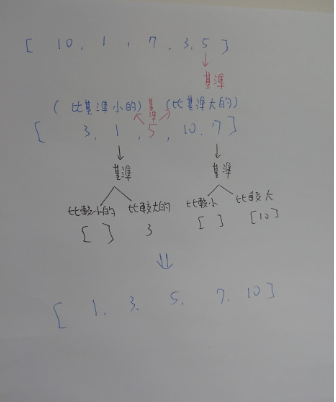 [ 10, 1, 7, 3, 5 ]
基準
( 比基準小的) 基準 (比基準大的)
[ 3, 1, 5, 10, 7 ]
基準 基準
比較小的 比較大的 比較小 比較大
[ ] 3 [ ] [10]
[ 1, 3, 5, 7, 10 ]